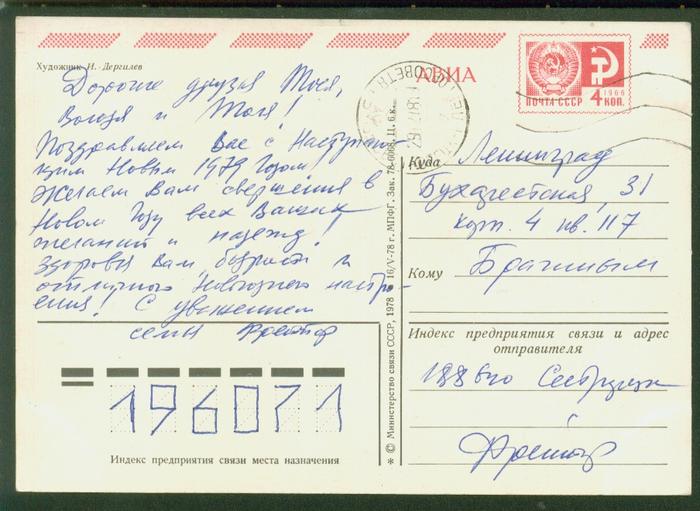 Художник И. Дергилев
АВИА
ПОЧТА СССР 4 КОП.
1966
Дорогие друзья Тося,
Володя и Тося!
Поздравляем Вас с Наступаю-
щим Новым 1979 Годом
Желаем Вам свершения в
Новом Году всех Ваших
желаний и надежд.
Здоровья Вам, бодрости и
отличного Новогоднего настро-
ения! С уважением
семья
Куда Ленинград
Бухарестская, 31
корп. 4 кв. 117
Кому
Индекс предприятия связи и адрес
отправителя
188640
196071
Индекс предприятия связи места назначения
* © Министерство связи СССР, 1978 г. 16/V-78 г. МПФГ. Зак. 78-6088. Ц. 6 к.